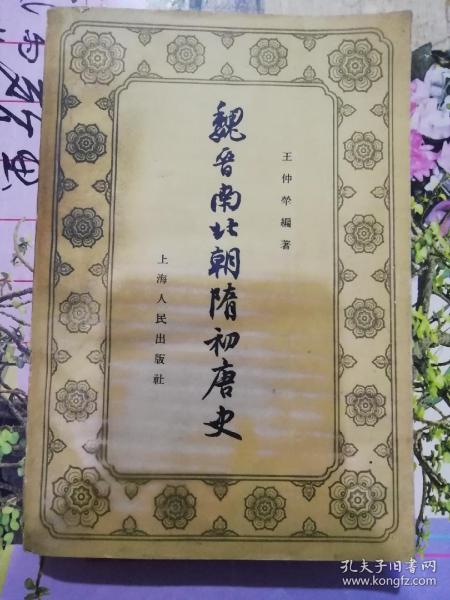 王仲犖編著
魏晉南北朝隋初唐史
上海人民出版社
孔夫子旧书网
www.kongfz.com